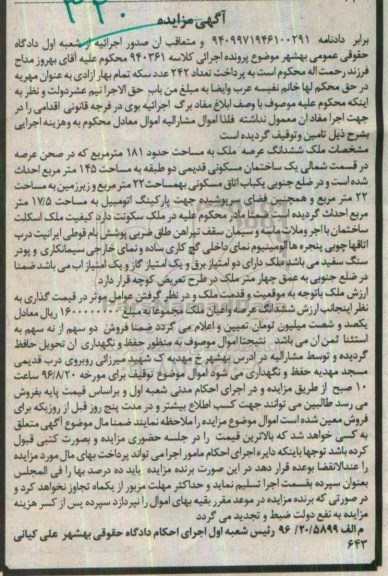 آگهی مزایده
برابر دادنامه ۹۴۰۹۹۷۱۹۴۶۱۰۰۲۹۱ و متعاقب آن صدور اجرائیه از شعبه اول دادگاه
حقوقی عمومی بهشهر موضوع پرونده اجرائی کلاسه ۹۴۰۳۶۱ محکوم علیه آقای بهروز مداح
فرزند رحمت اله محکوم است به پرداخت تعداد ۲۴۲ عدد سکه تمام بهار آزادی به عنوان مهریه
در حق محکم لها خانم نفیسه عرب وایضا به مبلغ من باب حق الاجرا نیم عشردولت و نظر به
اینکه محکوم علیه موصوف با وصف ابلاغ مفاد برگ اجرائیه بوی در فرجه قانونی اقدامی را در
جهت اجرا مفاد ان معمول نداشته فلذا اموال مشارالیه اموال معادل محکوم به وهزینه اجرایی
بشرح ذیل تامین وتوقیف گردیده است
مشخصات ملک ششدانگ عرصه ملک به مساحت حدود ۱۸۱ مترمربع که در صحن عرصه
در قسمت شمالی یک ساختمان مسکونی قدیمی دو طبقه به مساحت ۱۴۵ متر مربع احداث
شده است و در ضلع جنوبی یکباب اتاق مسکونی بهمساحت۲۲ متر مربع و زیرزمین به مساحت
۲۲ متر مربع و همچنین فضای سرپوشیده جهت پارکینگ اتومبیل به مساحت ۱۷/۵ متر
مربع احداث گردیده است ضمنا مادر محکوم علیه در ملک سکونت دارد کیفیت ملک اسکلت
ساختمان با اجر وملات ماسه و سیمان سقف تیراهن طاق ضربی پوشش بام قوطی ایرانیت درب
اتاقها چوبی پنجره ها الومینیوم نمای داخلی گچ کاری ساده و نمای خارجی سیمانکاری و پودر
سنگ سفید می باشد ملک دارای دو امتیاز برق و یک امتیاز گاز و یک امتیاز اب می باشد ضمنا
در ضلع جنوبی به عمق چهار متر ملک در طرح تعریض کوچه قرار دارد
ارزش ملک باتوجه به موقعیت و قدمت ملک و در نظر گرفتن عوامل موثر در قیمت گذاری به
نظر اینجانب ارزش ششدانگ عرصه واعیان ملک مجموعا به مبلغ ۱۶۰۰۰۰۰۰۰۰ ریال معادل
یکصد و شصت میلیون تومان تعیین و اعلام می گردد ضمنا فروش دو سهم از نه سهم به
استثنا ثمن ان می باشد. نتیجتا اموال موصوف به منظور حفظ و نگهداری ان تحویل حافظ
گردیده و توسط مشارالیه در آدرس بهشهر خ مهدیه ک شهید میرزائی روبروی درب قدیمی
مسجد مهدیه حفظ و نگهداری می شود اموال موضوع توقیف برای مورخه ۹۶/۸/۲۰ ساعت
۱۰ صبح از طریق مزایده و در اجرای احکام مدنی شعبه اول و براساس قیمت پایه بفروش
می رسد طالبین می توانند جهت کسب اطلاع بیشتر و در مدت پنج روز قبل از روزیکه برای
فروش معین شده است اموال موضوع مزایده را ملاحظه نمایند ضمنا مال موضوع آگهی متعلق
به کسی خواهد شد که بالاترین قیمت را در جلسه حضوری مزایده و بصورت کتبی قبول
کرده باشد توجها باینکه دایره اجرای احکام مامور اجرا می تواند پرداخت بهای مال مورد مزایده
را عندالاقتضا بوعده قرار دهد در این صورت برنده مزایده باید ده درصد بها را فی المجلس
بعنوان سپرده بقسمت اجرا تسلیم نماید و حداکثر مهلت مزبور از یکماه تجاوز نخواهد کرد و
در صورتی که برنده مزایده در موعد مقرر بقیه بهای اموال را نپردازد سپرده پس از کسر هزینه
مزایده به نفع دولت ضبط و تجدید می گردد
م الف ۹۶/۲۰/۵۸۹۹ رئیس شعبه اول اجرای احکام دادگاه حقوقی بهشهر علی کیانی
۶۴۳